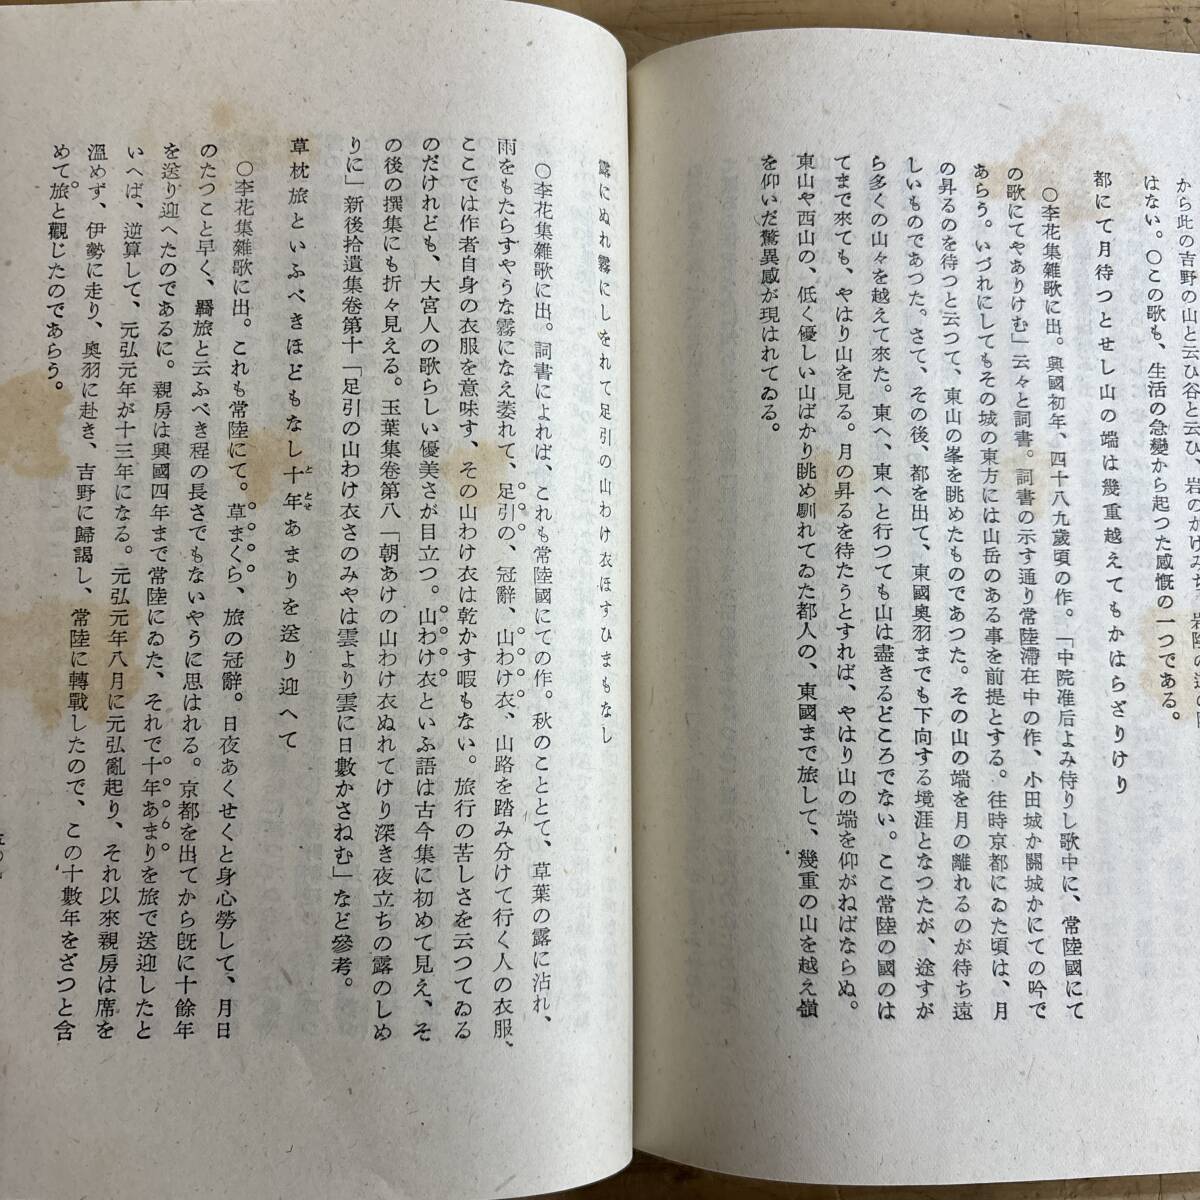 から此の吉野の山と云ひ谷と云ひ、岩のかけみち、岩陸の
はない。〇この歌も、生活の急變から起つた感慨の一つである。
都にて月待つとせし山の端は幾重越えてもかはらざりけり
〇李花集雜歌に出。興國初年、四十八九歲頃の作。「中院准后よみ侍りし歌中に、常陸國にて
の歌にてやありけむ」云々と詞書。詞書の示す通り常陸滯在中の作、小田城か關城かにての吟で
あらう。いづれにしてもその城の東方には山岳のある事を前提とする。往時京都にゐた頃は、月
の昇るのを待つと云つて、東山の峯を眺めたものであつた。その山の端を月の離れるのが待ち遠
しいものであつた。さて、その後、都を出て、東國奧羽までも下向する境涯となつたが、途すが
ら多くの山々を越えて來た。東へ、東へと行つても山は盡きるどころでない。ここ常陸の國のは
てまで來ても、やはり山を見る。月の昇るを待たうとすれば、やはり山の端を仰がねばならぬ。
東山や西山の、低く優しい山ばかり眺め馴れてゐた都人の、東國まで旅して、幾重の山を越え嶺
を仰いだ驚異感が現はれてゐる。
露にぬれ霧にしをれて足引の山わけ衣ほすひまもなし
〇李花集雜歌に出。詞書によれば、これも常陸國にての作。秋のこととて、草葉の露に沾れ、
雨をもたらすやうな霧になえ萎れて、足引の、冠辭、山わけ衣、山路を踏み分けて行く人の衣服、
ここでは作者自身の衣服を意味す、その山わけ衣は乾かす暇もない。旅行の苦しさを云つてゐる
のだけれども、大宮人の歌らしい優美さが目立つ。山わけ衣といふ語は古今集に初めて見え、そ
の後の撰集にも折々見える。玉葉集卷第八「朝あけの山わけ衣ぬれてけり深き夜立ちの露のしぬ
りに」新後拾遺集卷第十「足引の山わけ衣さのみやは雲より雲に日數かさねむ」など參考。
草枕旅といふべきほどもなし十年あまりを送り迎へて
〇李花集雜歌に出。これも常陸にて。草まくら、旅の冠辭。日夜あくせくと身心勞して、月日
のたつこと早く、羇旅と云ふべき程の長さでもないやうに思はれる。京都を出てから旣に十餘年
を送り迎へたのであるに。親房は興國四年まで常陸にゐた、それで十年あまりを旅で送迎したと
いへば、逆算して、元弘元年が十三年になる。元弘元年八月に元弘亂起り、それ以來親房は席を
溫めず、伊勢に走り、奧羽に赴き、吉野に歸謁し、常陸に轉戰したので、この十數年をざつと含
めて旅と觀じたのであらう。